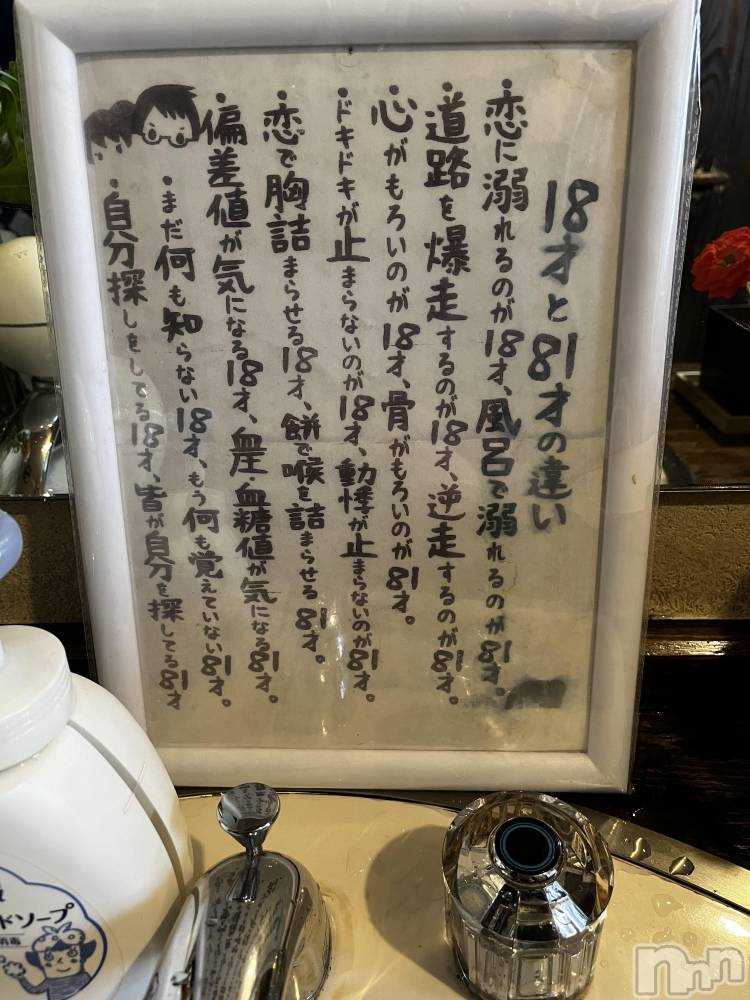 18才と81才の違い
・恋に溺れるのが18才、風呂で溺れるのが81才。
・道路を爆走するのが18才、逆走するのが81才。
・心がもろいのが18才、骨がもろいのが81才。
・ドキドキが止まらないのが18才、動悸が止まらないのが81才。
・恋で胸詰まらせる18才、餅で喉を詰まらせる81才。
・偏差値が気になる18才、血圧・血糖値が気になる81才。
・まだ何も知らない18才、もう何も覚えていない81才。
・自分探しをしてる18才、皆が自分を探してる81才
ドソープ
消毒
nnn